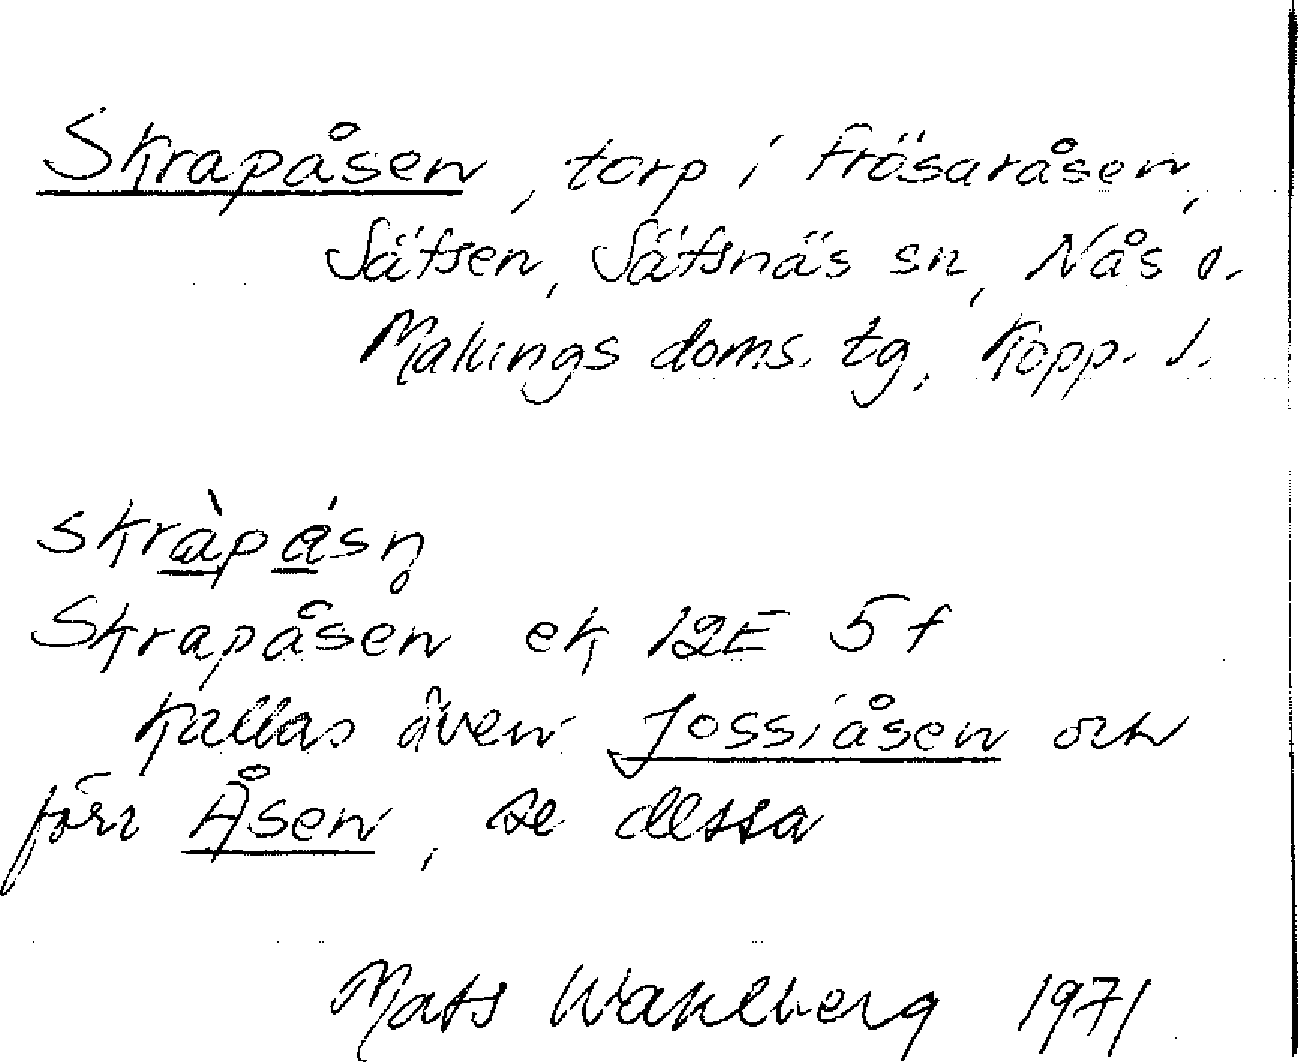 Skrapåsen, torp i Frösaråsen,
Säfsen, Säfsnäs sn, Nås o.
Malungs doms. tg, Kopp. l.
skràpásn̥
Skrapåsen ek 12E 5f
kallas även Jossiåsen och
förr Åsen, se dessa
Mats Wahlberg 1971